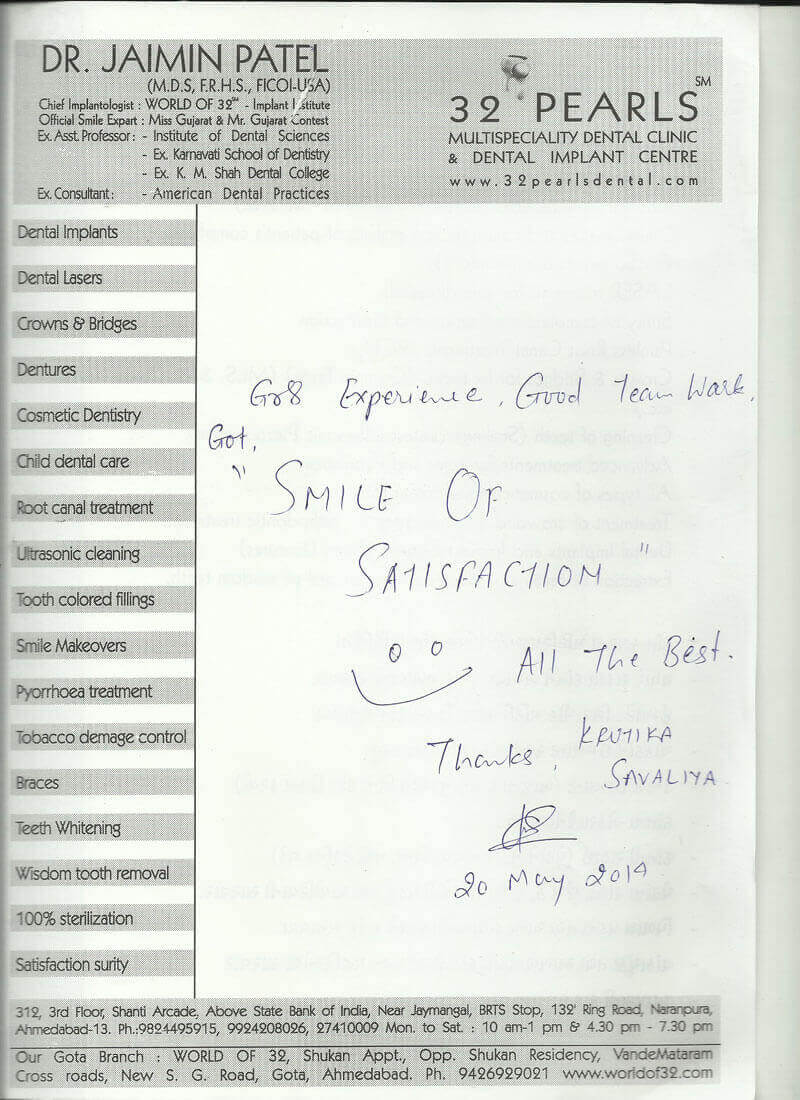 DR. JAIMIN PATEL
(M.D.S, F.R.H.S., FICOI-USA)
Chief Implantologist : WORLD OF 32™ - Implant Institute
Official Smile Expart : Miss Gujarat & Mr. Gujarat Contest
Ex. Asst. Professor : - Institute of Dental Sciences
- Ex. Karnavati School of Dentistry
- Ex. K. M. Shah Dental College
Ex. Consultant : - American Dental Practices
32 PEARLS SM
MULTISPECIALITY DENTAL CLINIC
& DENTAL IMPLANT CENTRE
www.32pearlsdental.com
Dental Implants
Dental Lasers
Crowns & Bridges
Dentures
Cosmetic Dentistry
Child dental care
Root canal treatment
Ultrasonic cleaning
Tooth colored fillings
Smile Makeovers
Pyorrhoea treatment
Tobacco demage control
Braces
Teeth Whitening
Wisdom tooth removal
100% sterilization
Satisfaction surity
Gr8 Experience, Good Team Work,
Got,
" SMILE OF
SATISFACTION "
All The Best.
Thanks,
KRUTIKA
SAVALIYA
20 May 2014
312, 3rd Floor, Shanti Arcade, Above State Bank of India, Near Jaymangal, BRTS Stop, 132' Ring Road, Naranpura,
Ahmedabad-13. Ph.:9824495915, 9924208026, 27410009 Mon. to Sat. : 10 am-1 pm & 4.30 pm - 7.30 pm
Our Gota Branch : WORLD OF 32, Shukan Appt., Opp. Shukan Residency, VandeMataram
Cross roads, New S. G. Road, Gota, Ahmedabad. Ph. 9426929021 www.worldof32.com